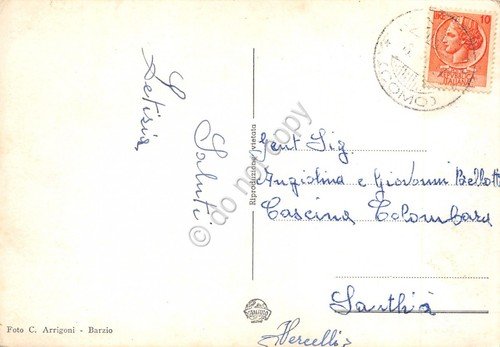 Saluti
Letizia
Gent Sig.
Angiolina e Giovanni Bellott
Cascina Colombara
Santhià
(Vercelli)
Riproduzione vietata
Foto C. Arrigoni - Barzio
10
(COMO)
© do not copy